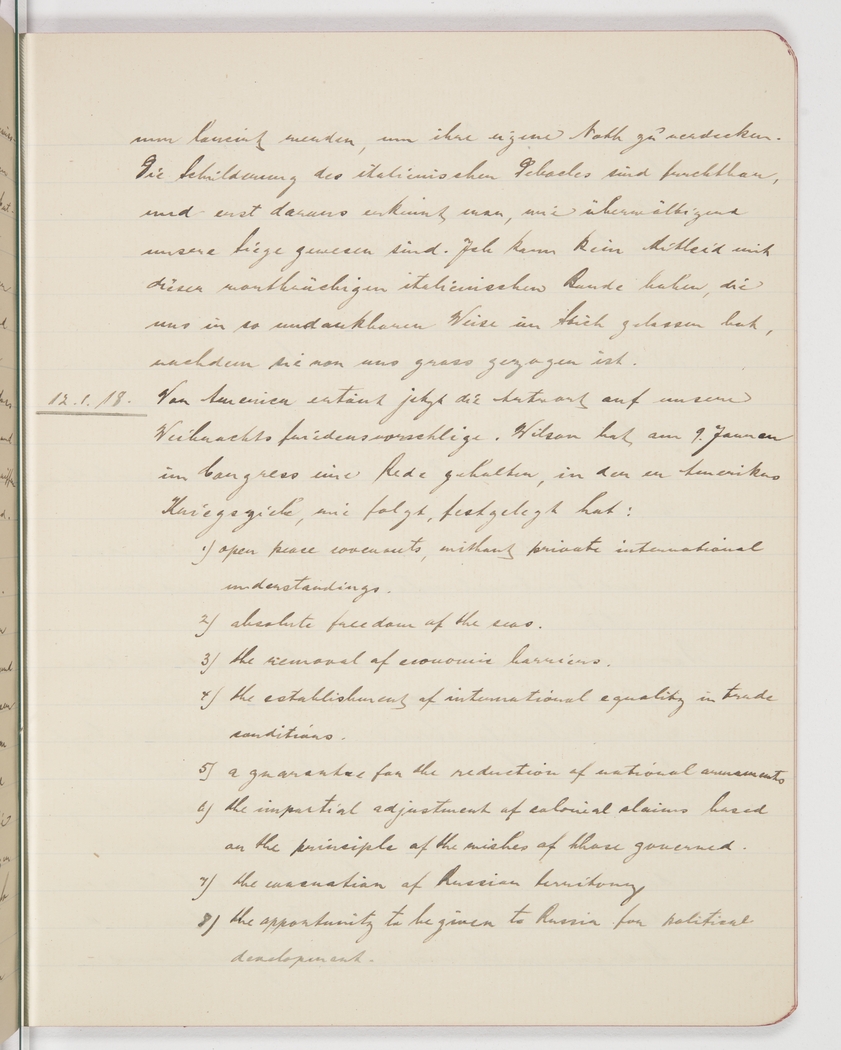 nur lanciert werden, um ihre eigene Noth zu verdecken.
Die Schilderung des italienischen Debacles sind furchtbar,
und erst daraus erkennt man, wie überwältigend
unsere Siege gewesen sind. Ich kann kein Mitleid mit
dieser wortbrüchigen italienischen Bande haben, die
uns in so undankbarer Weise im Stich gelassen hat,
nachdem sie von uns gross gezogen ist.
12.1.18. Von America ertönt jetzt die Antwort auf unsere
Weihnachtsfriedensvorschläge. Wilson hat am 9. Januar
im Congress eine Rede gehalten, in der er Amerikas
Kriegsziele, wie folgt, festgelegt hat:
1) open peace covenants, without private international
understandings.
2) absolute freedom of the seas.
3) the removal of economic barriers.
4) the establishment of international equality in trade
conditions.
5) a guarantee for the reduction of national armaments
6) the impartial adjustment of colonial claims based
on the principle of the wishes of those governed.
7) the evacuation of Russian territory
8) the opportunity to be given to Russia for political
development.